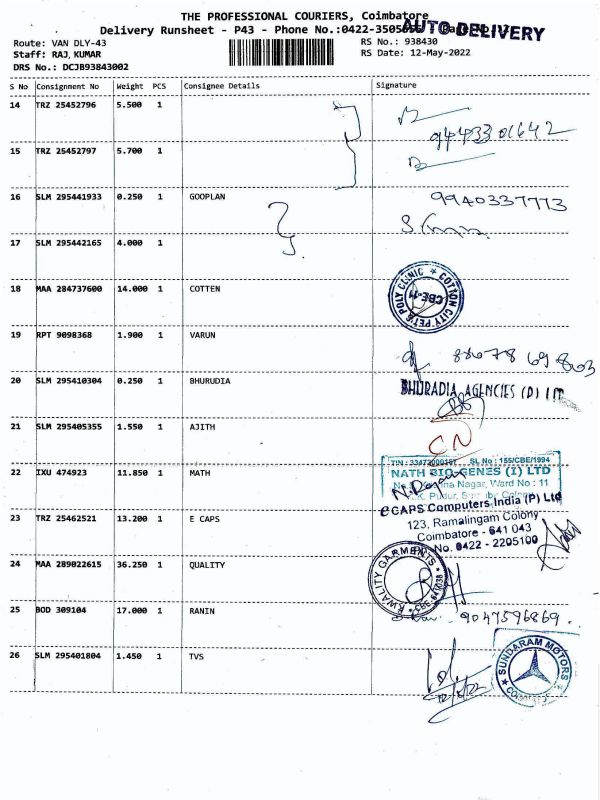 THE PROFESSIONAL COURIERS, Coimbatore
Delivery Runsheet - P43 - Phone No.:0422-3505
AUTO DELIVERY
Route: VAN DLY-43
RS No.: 938430
Staff: RAJ,KUMAR
RS Date: 12-May-2022
DRS No.: DCJB93843002
S No Consignment No Weight PCS Consignee Details Signature
14 TRZ 25452796 5.500 1
9443301642
15 TRZ 25452797 5.700 1
16 SLM 295441933 0.250 1 GOOPLAN 9940337773
17 SLM 295442165 4.000 1
18 MAA 284737600 14.000 1 COTTEN
COTTON CITY PETS POLY CLINIC
CBE-11
19 RPT 9098368 1.900 1 VARUN 88678 69863
20 SLM 295410304 0.250 1 BHURUDIA
BHURADIA AGENCIES (P) LTD
21 SLM 295405355 1.550 1 AJITH
CN
TIN : 33472000187 SL No : 155/CBE/1994
22 IXU 474923 11.850 1 MATH
NATH BIO-GENES (I) LTD
Nagar, Ward No : 11
K. Pudur,
23 TRZ 25462521 13.200 1 E CAPS
eCAPS Computers India (P) Ltd
123, Ramalingam Colony
Coimbatore - 641 043
No. 0422 - 2205100
24 MAA 289022615 36.250 1 QUALITY
KWALITY GARMENTS
CBE-641038
25 BOD 309104 17.000 1 RANIN 9047596869.
26 SLM 295401804 1.450 1 TVS
SUNDARAM MOTORS
12/5/22